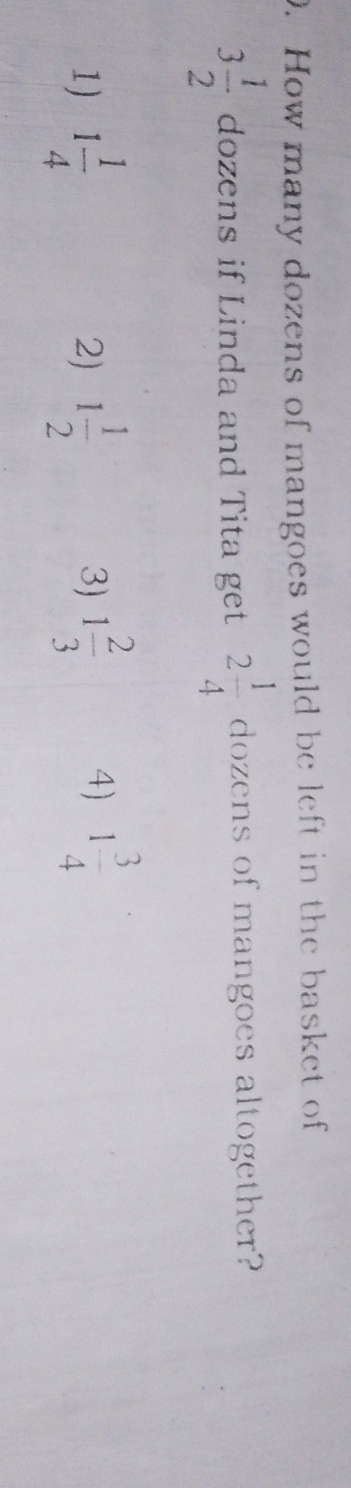 ). How many dozens of mangoes would be left in the basket of
3 1/2 dozens if Linda and Tita get 2 1/4 dozens of mangoes altogether?
1) 1 1/4 2) 1 1/2 3) 1 2/3 4) 1 3/4